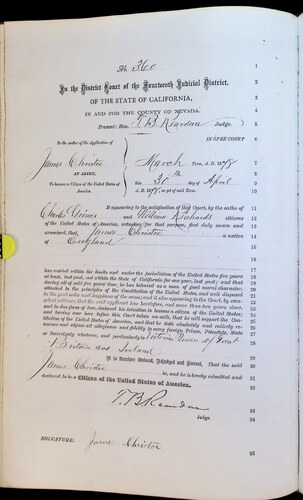 No 360
1
In the District Court of the Fourteenth Judicial District,
2
OF THE STATE OF CALIFORNIA,
3
IN AND FOR THE COUNTY OF NEVADA.
4
Present: Hon. T. B. Reardan Judge.
5
In the matter of the Application of
IN OPEN COURT
6
James Christoe
March Term, A. D. 1878
7
AN ALIEN,
this 30th day of April
8
To become a Citizen of the United States of America.
A. D. 1878, as yet of said Term.
9
It appearing to the satisfaction of this Court, by the oaths of
10
Charles Grimes and William Richards citizens
11
of the United States of America, witnesses for that purpose, first duly sworn and
12
examined, that James Christoe a native
13
of England
14
has resided within the limits and under the jurisdiction of the United States five years
at least, last past, and within the State of California for one year, last past; and that
during all of said five years' time, he has behaved as a man of good moral character,
attached to the principles of the Constitution of the United States, and well disposed
to the good order and happiness of the same; and it also appearing to the Court, by
competent evidence, that the said applicant has heretofore, and more than two years since,
and in due form of law, declared his intention to become a citizen of the United States,
and having now here before this Court taken an oath, that he will support the
Constitution of the United States of America, and that he doth absolutely and entirely
renounce and abjure all allegiance and fidelity to every foreign Prince, Potentate, State
or Sovereignty whatever, and particularly to Victoria Queen of Great
Britain and Ireland
It is therefore Ordered, Adjudged and Decreed, That the said
James Christoe be, and he is hereby admitted and
declared to be a Citizen of the United States of America.
T. B. Reardan
Judge.
SIGNATURE: James Christoe